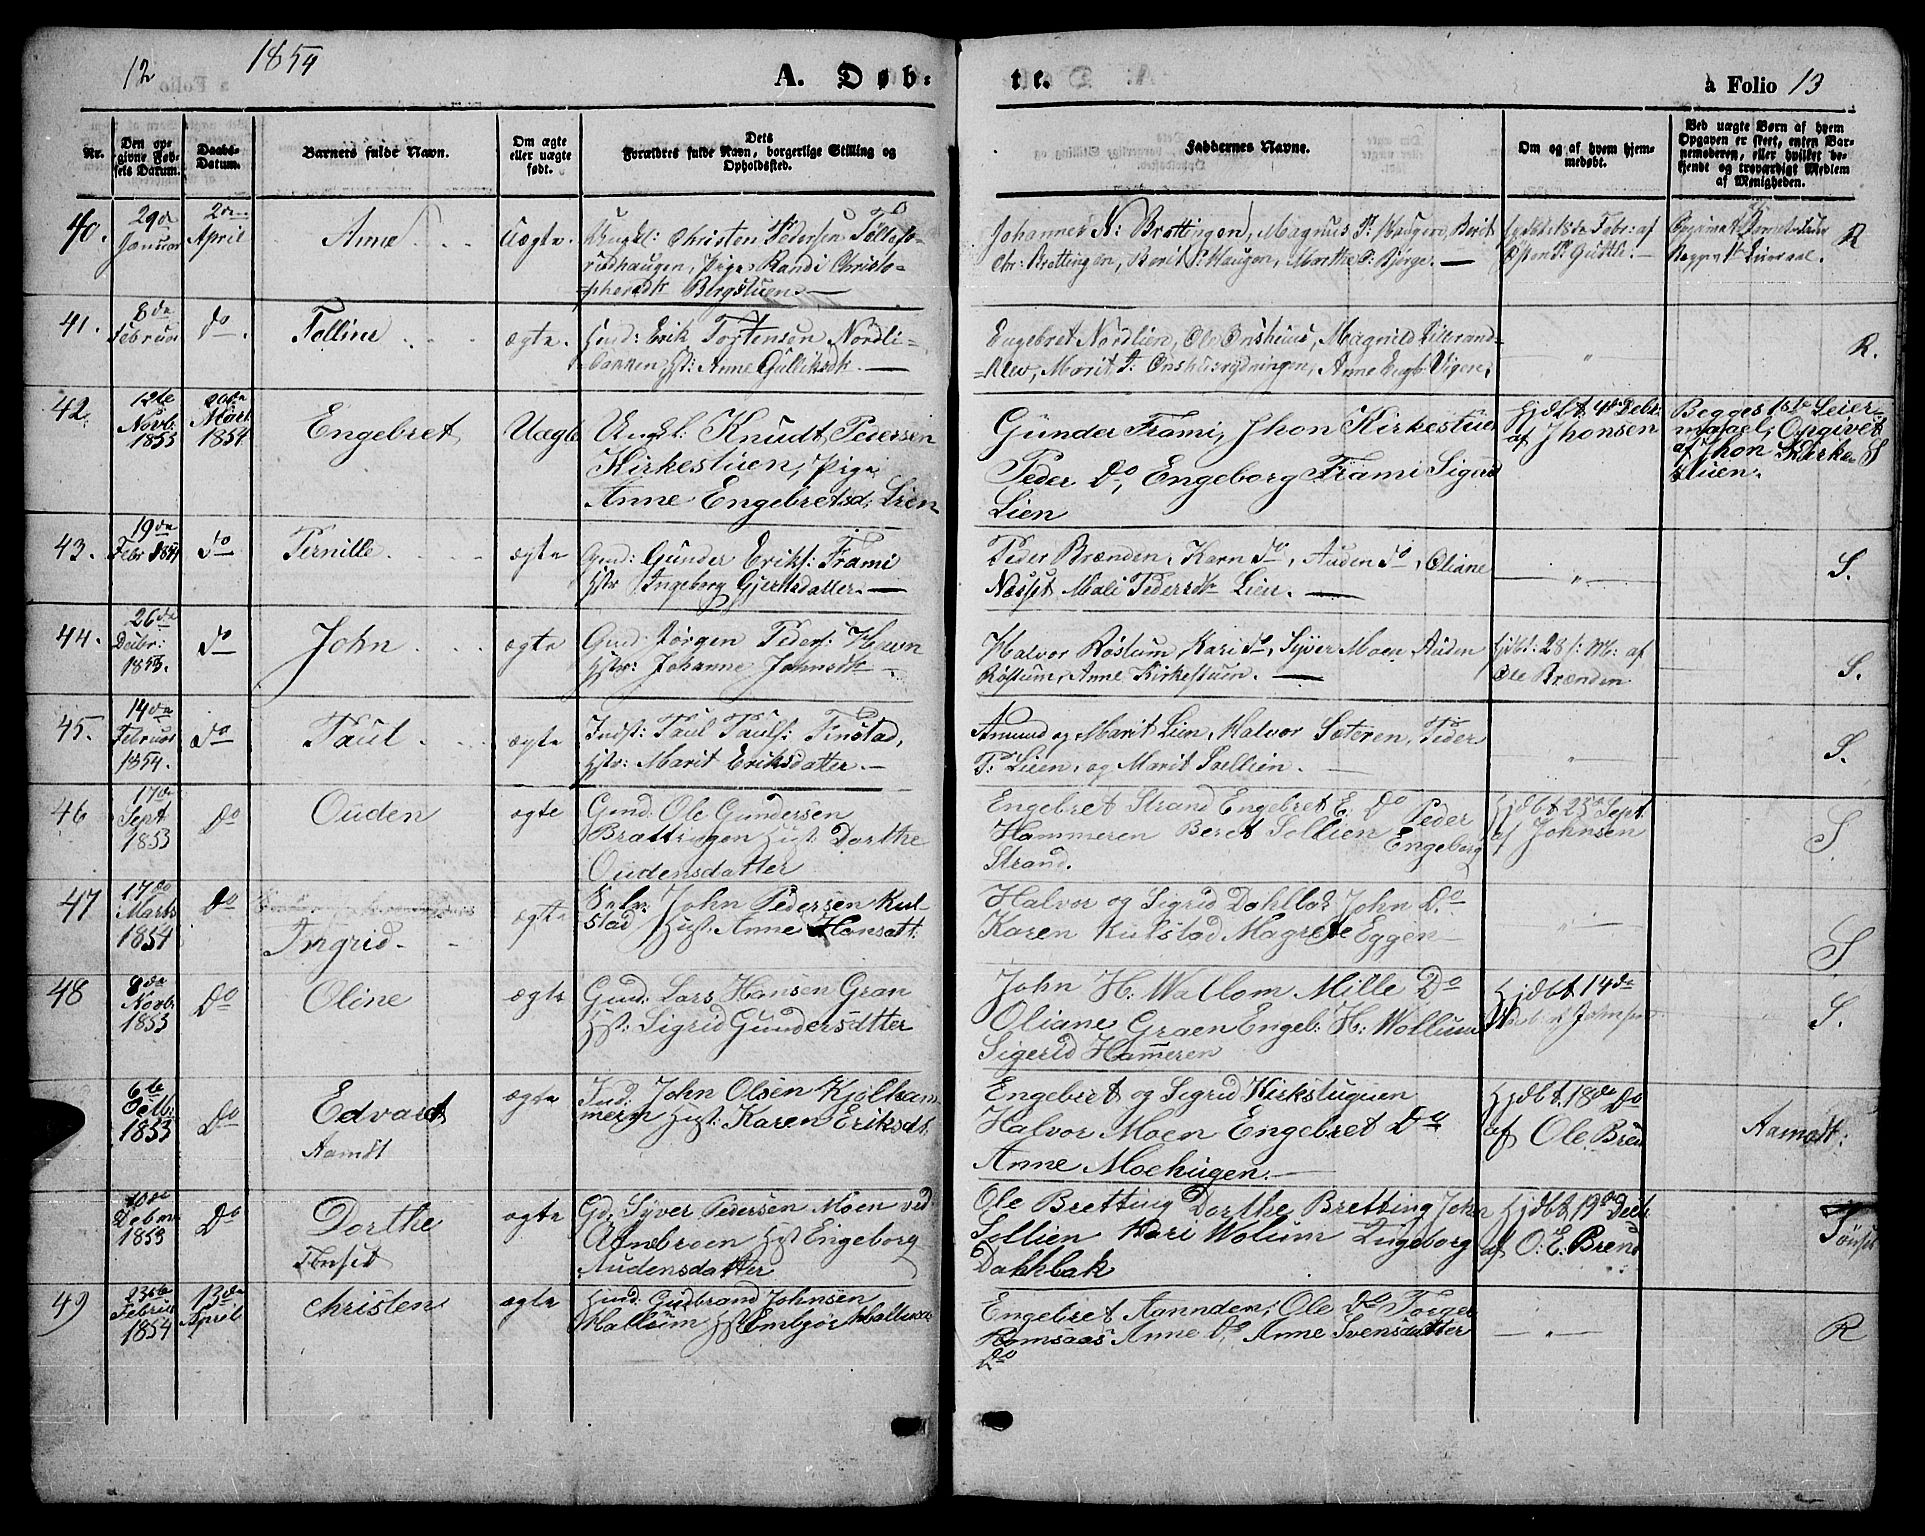 12
1854
A. Døb-
te.
a Folio 13
Nr.
Den op-
givne Fød-
sels Datum.
Daabs-
Datum.
Barnets fulde Navn.
Om ægte
eller uægte
født.
Dets
Forældres fulde Navn, borgerlige Stilling og
Opholdssted.
Faddernes Navne.
Om og af hvem hjem-
medøbt.
Ved uægte Børn af hvem
Opgaven er skeet, enten Bar-
nemoderen, eller hvilket be-
kjendt og troværdigt Medlem
af Menigheden.
40.
29de
Januar
2den
April
Anne
Uægte.
Ungkl: Christen Pedersen
rudhaugen, Pige Randi Christo-
phersdt Bergstuen.
Johannes N: Brettingen, Magnus P: Haugen, Berit
Chr: Brettingen, Berit P: Haugen, Marthe O: Bjørge.
hjdbt 18de Febr: af
R
41.
8de
Februar
do.
Polline
ægte.
Huusd: Erik Tostensen Nordli-
bakken, Hst: Anne Gulliksdt.
Engebret Nordlien, Ole Onshuus, Magnild
klev, Marit J: Onshuusrydningen, Anne Engbr: Vigen.
"
R.
42.
12te
Novbr
1853
20de
Marts
1854
Engebret
Uægte
Ungkl: Knudt Pedersen
Kirkestuen, Pige
Anne Engebretsd: Lien
Gunder Frami, Jhon Kirkestuen
Peder Do, Engeborg Frami Sigerd
Lien
Hjdbt 4de Debr.
af Jhonsen
Begges 1ste Leier-
maael; Opgivet
af Jhon Kirke-
stuen.
S
43.
19de
Febr 1854
do
Pernille
ægte
Gmd: Gunder Eriks: Frami
Hstr Ingeborg Gjerlsdatter.
Peder Brænden, Karn do, Auden do, Oliane
Næsset Mali Pedersdt Lien.
"
S.
44.
26de
Decbr:
1853.
do
John
ægte
Gmd: Jørgen Peders: Haun
Hstr: Johanne Johnsdt
Halvor Røstum, Kari do, Syver Moen Auden
Røstum, Anne Kirkestuen.
hjdbt: 28 s: M: af
Ole Brænden
S.
45.
14de
Februar
1854.
do
Paul
ægte
Indst: Paul Pauls: Finstad,
Hstr: Marit Eriksdatter.
Amund og Marit Lien, Halvor Sæteren, Peder
P: Lien, og Marit Sollien.
"
S.
46
17de
Sept
1853
Do
Ouden
ægte
Gmd: Ole Gundersen
Brættingen Hust: Dorthe
Oudensdatter
Engebret Strand Engebret E. Do Peder
Hammeren Beret Sollien Engeborg
Strand.
Hjdbt. 23de Sept
af Johnsen
S
47
17de
Marts
1854
Do
Ingrid
ægte
Selv: John Pedersen Kul-
stad Hust: Anne Hansdatt:
Halvor og Sigrid Dahlbak John Do
Karen Kulstad Magrete Eggen
"
S
48
8de
Novb:
1853
Do
Oline
ægte
Gmd: Lars Hansen Gran
Hst: Sigrid Gundersdatter
John H: Wallom Mille Do
Oliane Graen Engeb: H: Wollum
Sigerid Hameren
Hjdbt 14de
S.
6te
1853
Do
Edvardt
Aamdt
ægte
Ind: John Olsen Kjølham-
meren Hust: Karen Eriksdt.
Engebret og Sigrid Kirkstuguen
Halvor Moen Engebret Do
Anne Moehugen.
Hjdbt. 18de Do
af Ole Bren
Aamodt:
10de
Debm
1853
Do
Dorthe
Tønset
ægte
Gd. Syver Pedersen Moen ved
Hst Engeborg
Audensdatter
Ole Bretting Dorthe Bretting John
Sollien Kari Wolum Engeborg
Dahlbak
Hjdbt. 19de Decb.
af O: E: Brend
Tønset
49
23de
Februar
1854
13de
April
Christen
ægte
Huusd: Gudbrand Johnsen
Halleim Hst Embjør
Engebret Aannden, Ole Do Torger
Romsaas Anne Do Anne Svensdatter
Do
"
R